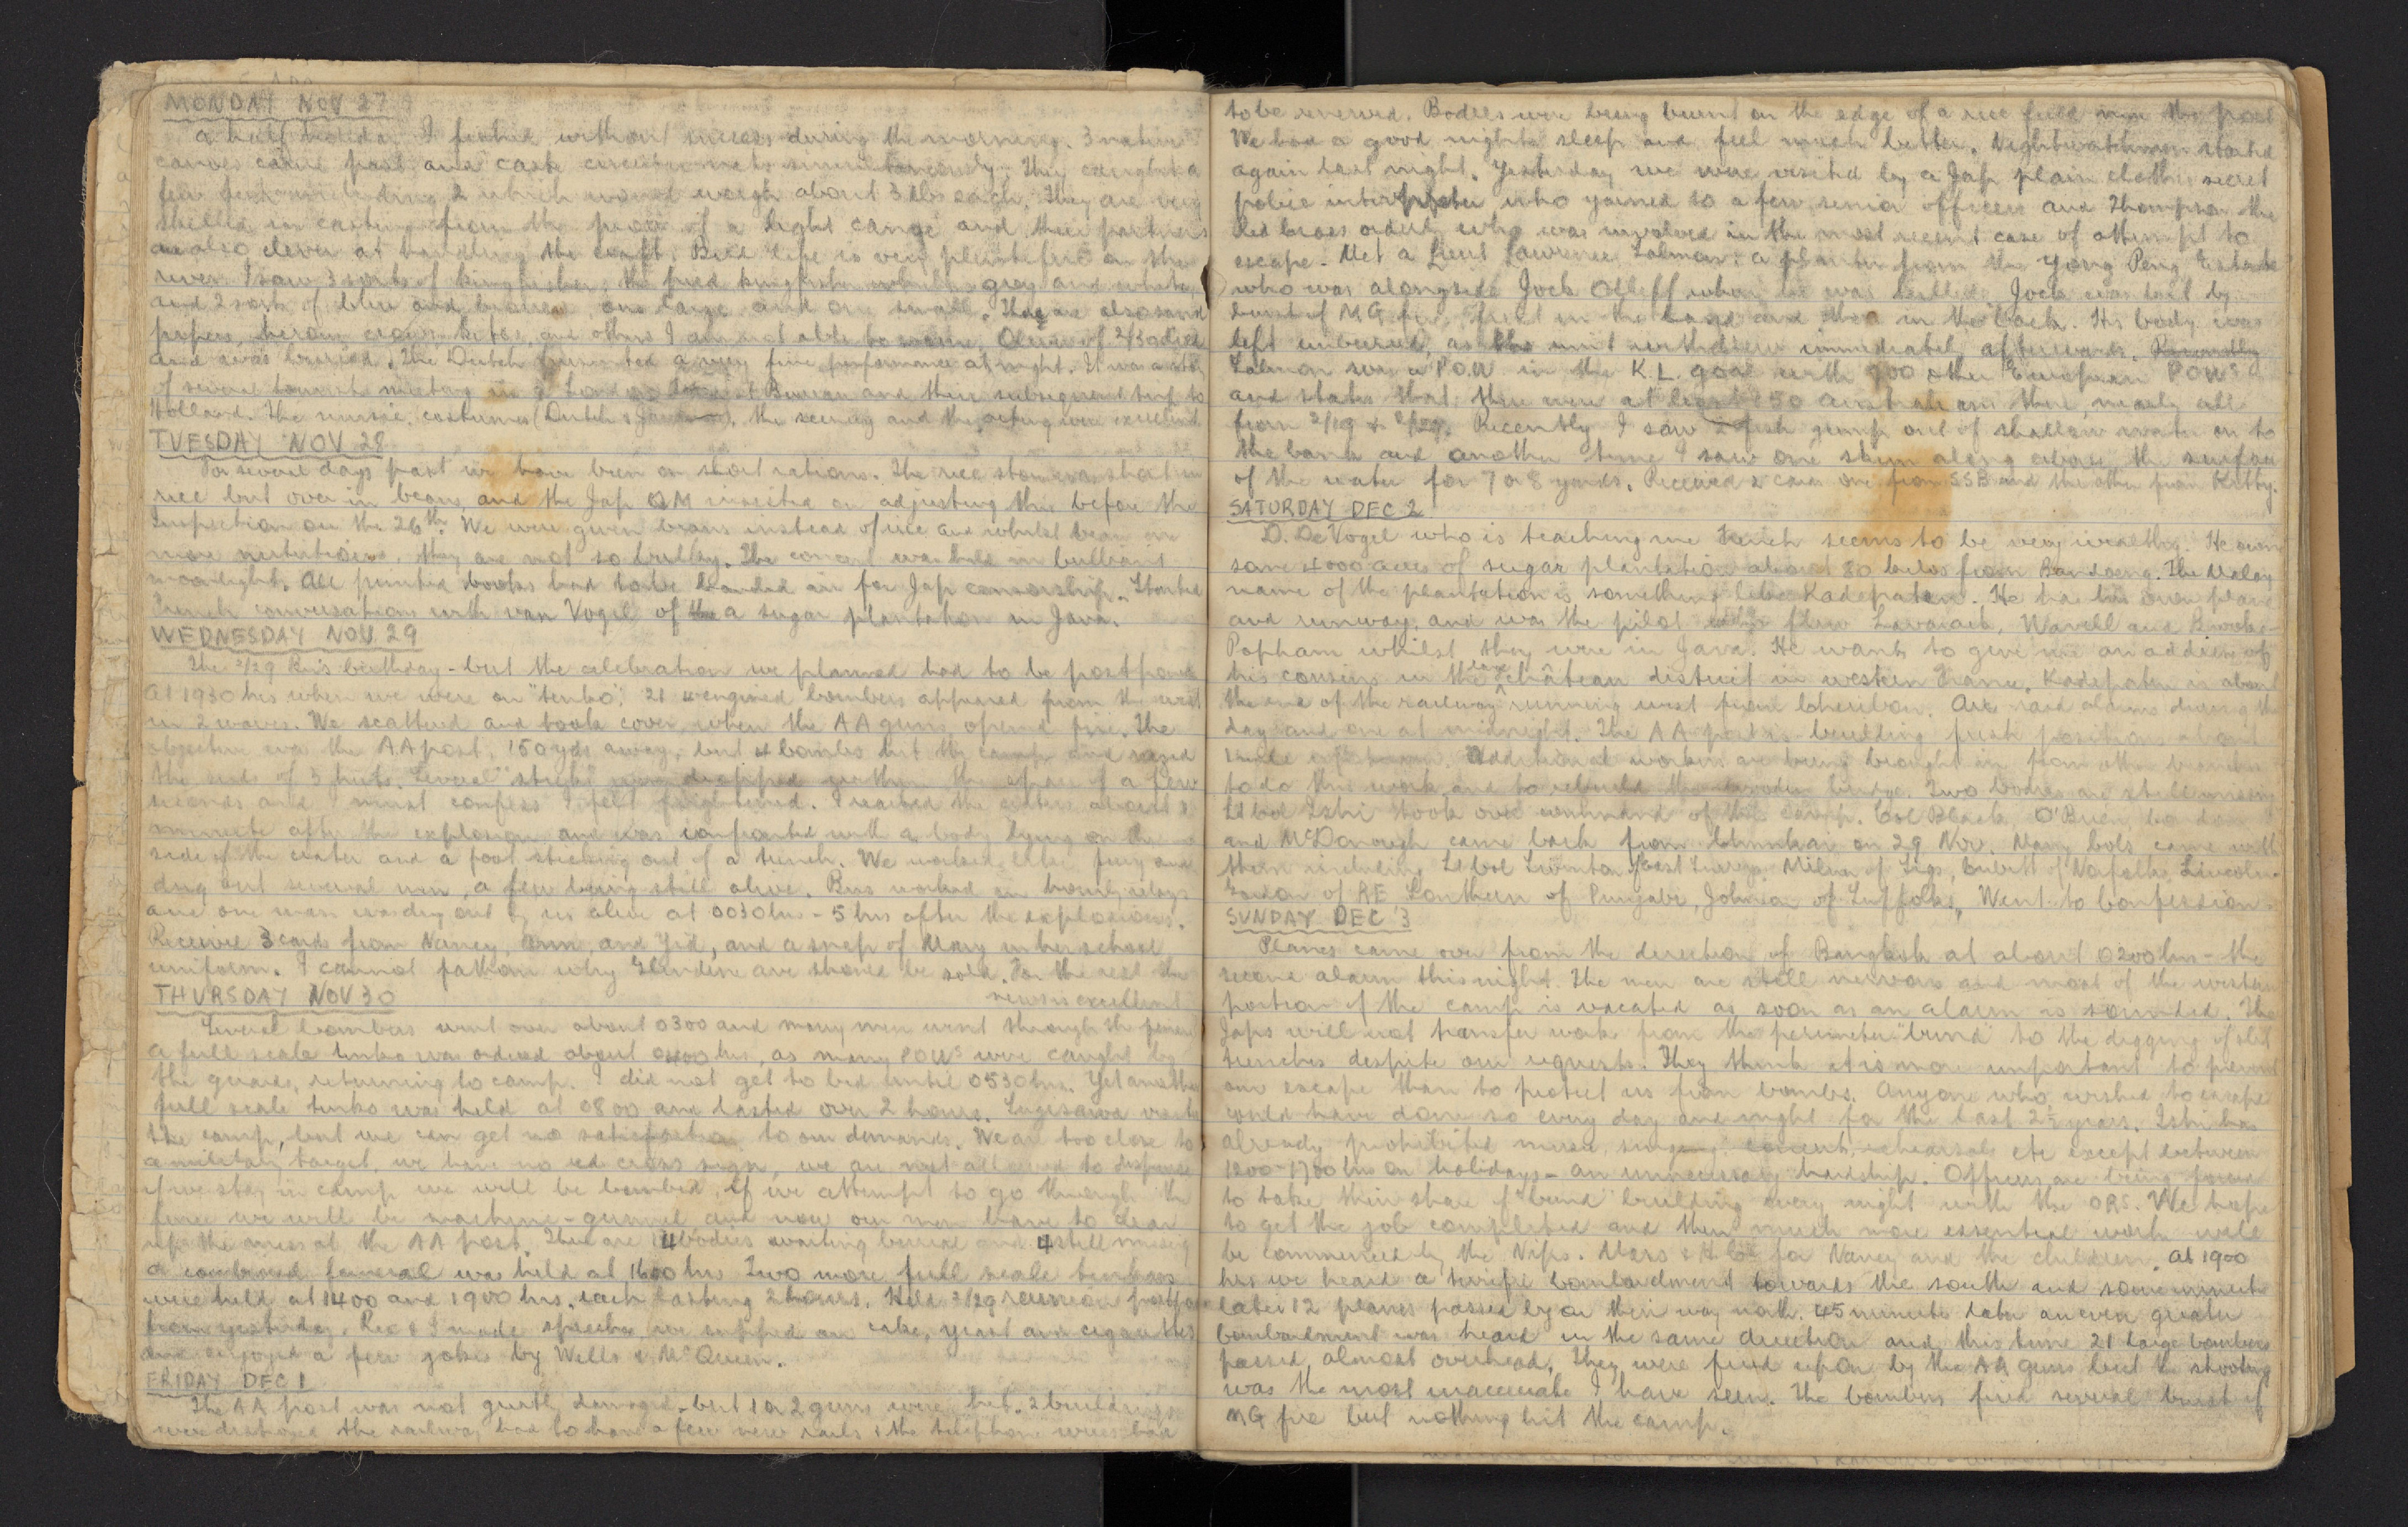 MONDAY NOV 27
A half holiday. I fished without success during the morning. 3 native
canoes came past and cast circular nets simultaneously. They caught a
few fish including 2 which would weigh about 3 lbs each. They are very
skilled in casting from the prow of a light canoe and their partners
are also clever at handling the craft. Bird life is very plentiful on the
river. I saw 3 sorts of kingfisher, the pied kingfisher which is grey and white,
and 2 sorts of blue and brown, one large and one small. There are also sand
pipers, herons, crows, kites, and others I am not able to name. of 2/30 died
and was buried. The Dutch presented a very fine performance at night. It was a story
of several tourists meeting in a Bureau and their subsequent trip to
Holland. The music, costumes (Dutch & ), the scenery and the acting were excellent.
TUESDAY NOV 28
For several days past we have been on short rations. The rice store was short in
rice but over in beans, and the Jap QM insisted on adjusting this before the
Inspection on the 26th. We were given beans instead of rice and whilst beans are
more nutritious, they are not so filling. The concert was held in brilliant
moonlight. All printed books had to be handed in for Jap censorship. Started
French conversations with van Vogel of the a sugar plantation in Java.
WEDNESDAY NOV 29
The 2/29 Bn's birthday - but the celebration we planned had to be postponed.
At 1930 hrs when we were on "tenko", 21 4 engined bombers appeared from the west
in 2 waves. We scattered and took cover when the AA guns opened fire. The
objective was the AA post, 150 yds away, but 4 bombs hit the camp and razed
the ends of 3 huts. Several "sticks" were dropped within the space of a few
seconds and I must confess I felt frightened. I reached the craters about a
minute after the explosion and was confronted with a body lying on the
side of the crater and a foot sticking out of a trench. We worked like fury and
dug out several men, a few being still alive. Bns worked in hourly relays
and one man was dug out by us alive at 0030 hrs - 5 hrs after the explosions.
Received 3 cards from Nancy, and , and a snap of Mary in her school
uniform. I cannot fathom why Ave should be sold. For the rest the
news is excellent
THURSDAY NOV 30
Several bombers went over about 0300 and many men went through the fence.
A full scale tenko was ordered about 0400 hrs, as many POWs were caught by
the guards, returning to camp. I did not get to bed until 0530 hrs. Yet another
full scale tenko was held at 0800 and lasted over 2 hours. visited
the camp, but we can get no satisfaction to our demands. We are too close to
a military target, we have no red cross sign, we are not allowed to disperse
if we stay in camp we will be bombed, if we attempt to go through the
fence we will be machine-gunned and now our men have to clear
up the mess at the AA post. There are 14 bodies awaiting burial and 4 still missing
A combined funeral was held at 1600 hrs. Two more full scale tenkos
were held at 1400 and 1900 hrs, each lasting 2 hours. Held 2/29 reunion postponed
from yesterday. Rex & I made speeches, we supped on cake, yeast and cigarettes
and enjoyed a few jokes by Wells & McQueen.
FRIDAY DEC 1
The AA post was not greatly damaged - but 1 or 2 guns were hit. 2 buildings
were destroyed, the railway had to have a few new rails & the telephone wires had
to be renewed. Bodies were being burnt on the edge of a rice field near the post
We had a good nights sleep and feel much better. Nightwatchman started
again last night. Yesterday we were visited by a Jap plain clothes secret
police interpreter who yarned to a few senior officers and Thompson the
Red Cross orderly who was involved in the most recent case of attempt to
escape. Met a Lieut Lawrence Salmon, a planter from the Yong Peng Estate
who was alongside Jock Olleff when he was killed. Jock was hit by
burst of MG fire, first in the hand and then in the back. His body was
left unburied, as the unit withdrew immediately afterwards.
Salmon was a POW in the K.L. goal with 900 other European POWs
and states that there were at least 150 Australians there, nearly all
from 2/19 & 2/29. Recently I saw 2 fish jump out of shallow water on to
the bank and another time I saw one skim along above the surface
of the water for 7 or 8 yards. Received 2 cards one from SSB and the other from Kitty.
SATURDAY DEC 2
D. De Vogel who is teaching me French seems to be very wealthy. He owns
some 4000 acres of sugar plantation about 80 kilos from Bandoeng. The Malay
name of the plantation is something like Kadepaten. He has his own plane
and runway, and was the pilot who flew Lavarack, Wavell and Brooke-
Popham whilst they were in Java. He wants to give me an address of
his cousins in the château district in western France. Kadepaten is about
the end of the railway running west from Cheribon. Air raid alarms during the
day and one at midnight. The AA post is building fresh positions about
. Additional workers are being brought in from other branches
to do this work and to rebuild the wooden bridge. Two bodies are still missing
Lt Col Ishi took over command of this camp. Col Black, O'Brien,
and McDonough came back from Chunkai on 29 Nov. Many Cols came with
them including Lt Col Swinton East Surreys, Milner of Sigs, of Norfolks, Lincoln
of RE, of Punjabs, Johnson of Suffolks. Went to Confession.
SUNDAY DEC 3
Planes came over from the direction of Bangkok at about 0200 hrs - the
second alarm this night. The men are still nervous and most of the western
portion of the camp is vacated as soon as an alarm is sounded. The
Japs will not transfer work from the perimeter "bund" to the digging of slit
trenches despite our requests. They think it is more important to prevent
our escape than to protect us from bombs. Anyone who wished to escape
could have done so every day and night for the last 2½ years. Ishi has
already prohibited music, singing, concerts, rehearsals etc except between
1200-1700 hrs on holidays - an unnecessary hardship. Officers are being forced
to take their share of "bund" building every night with the ORS. We hope
to get the job completed and then much more essential work will
be commenced by the Nips. Mass & H.C. for Nancy and the children. At 1900
hrs we heard a terrific bombardment towards the south and some minutes
later 12 planes passed by on their way north. 45 minutes later an even greater
bombardment was heard in the same direction and this time 21 large bombers
passed almost overhead. They were fired upon by the AA guns but the shooting
was the most inaccurate I have seen. The bombers fired several burst of
MG fire but nothing hit the camp.